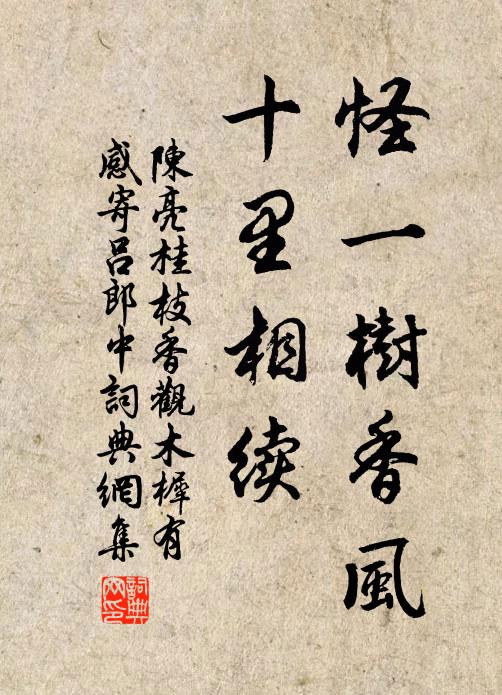 怪一樹香風
十里相续
陳亮桂枝香觀木樨有
感寄吕郎中詞典網集
詞典
网印